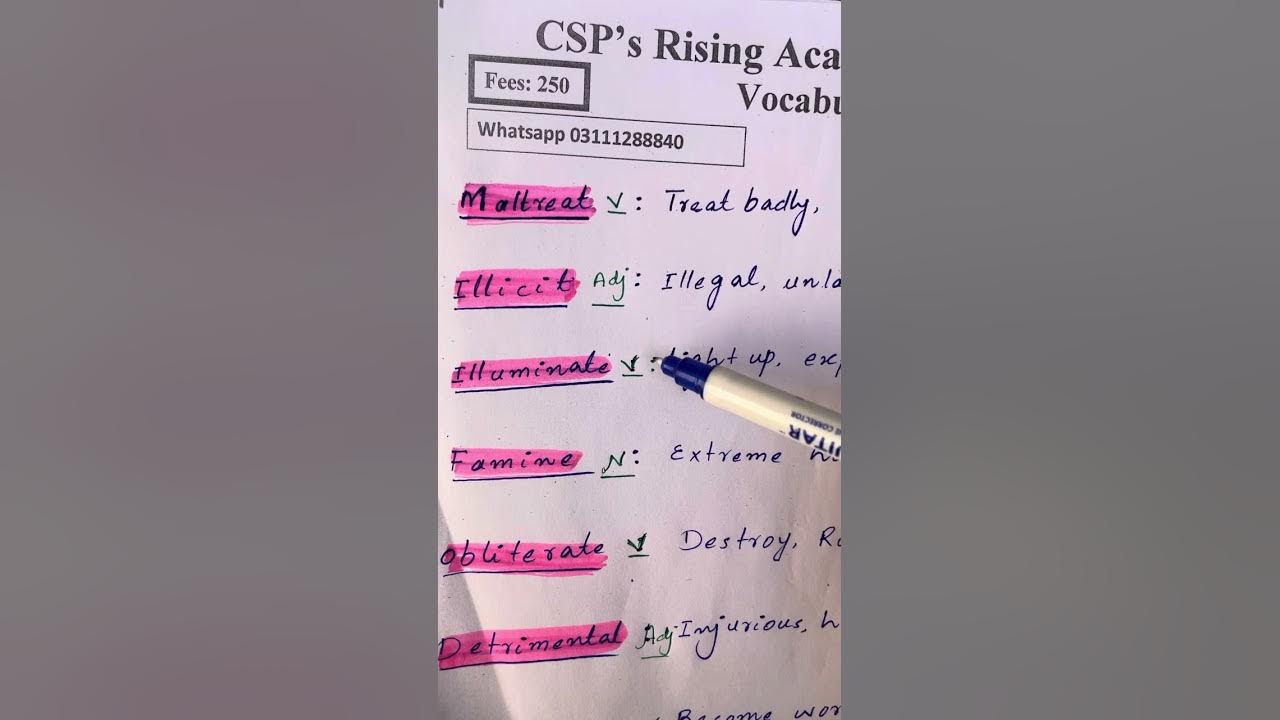 CSP's Rising Aca
Fees: 250
Vocabu
Whatsapp 03111288840
Maltreat V: Treat badly,
Illicit Adj: Illegal, unla
Illuminate V: Light up, exp
Famine N: Extreme
Obliterate V Destroy, Ru
Detrimental Adj Injurious, h
Become wor